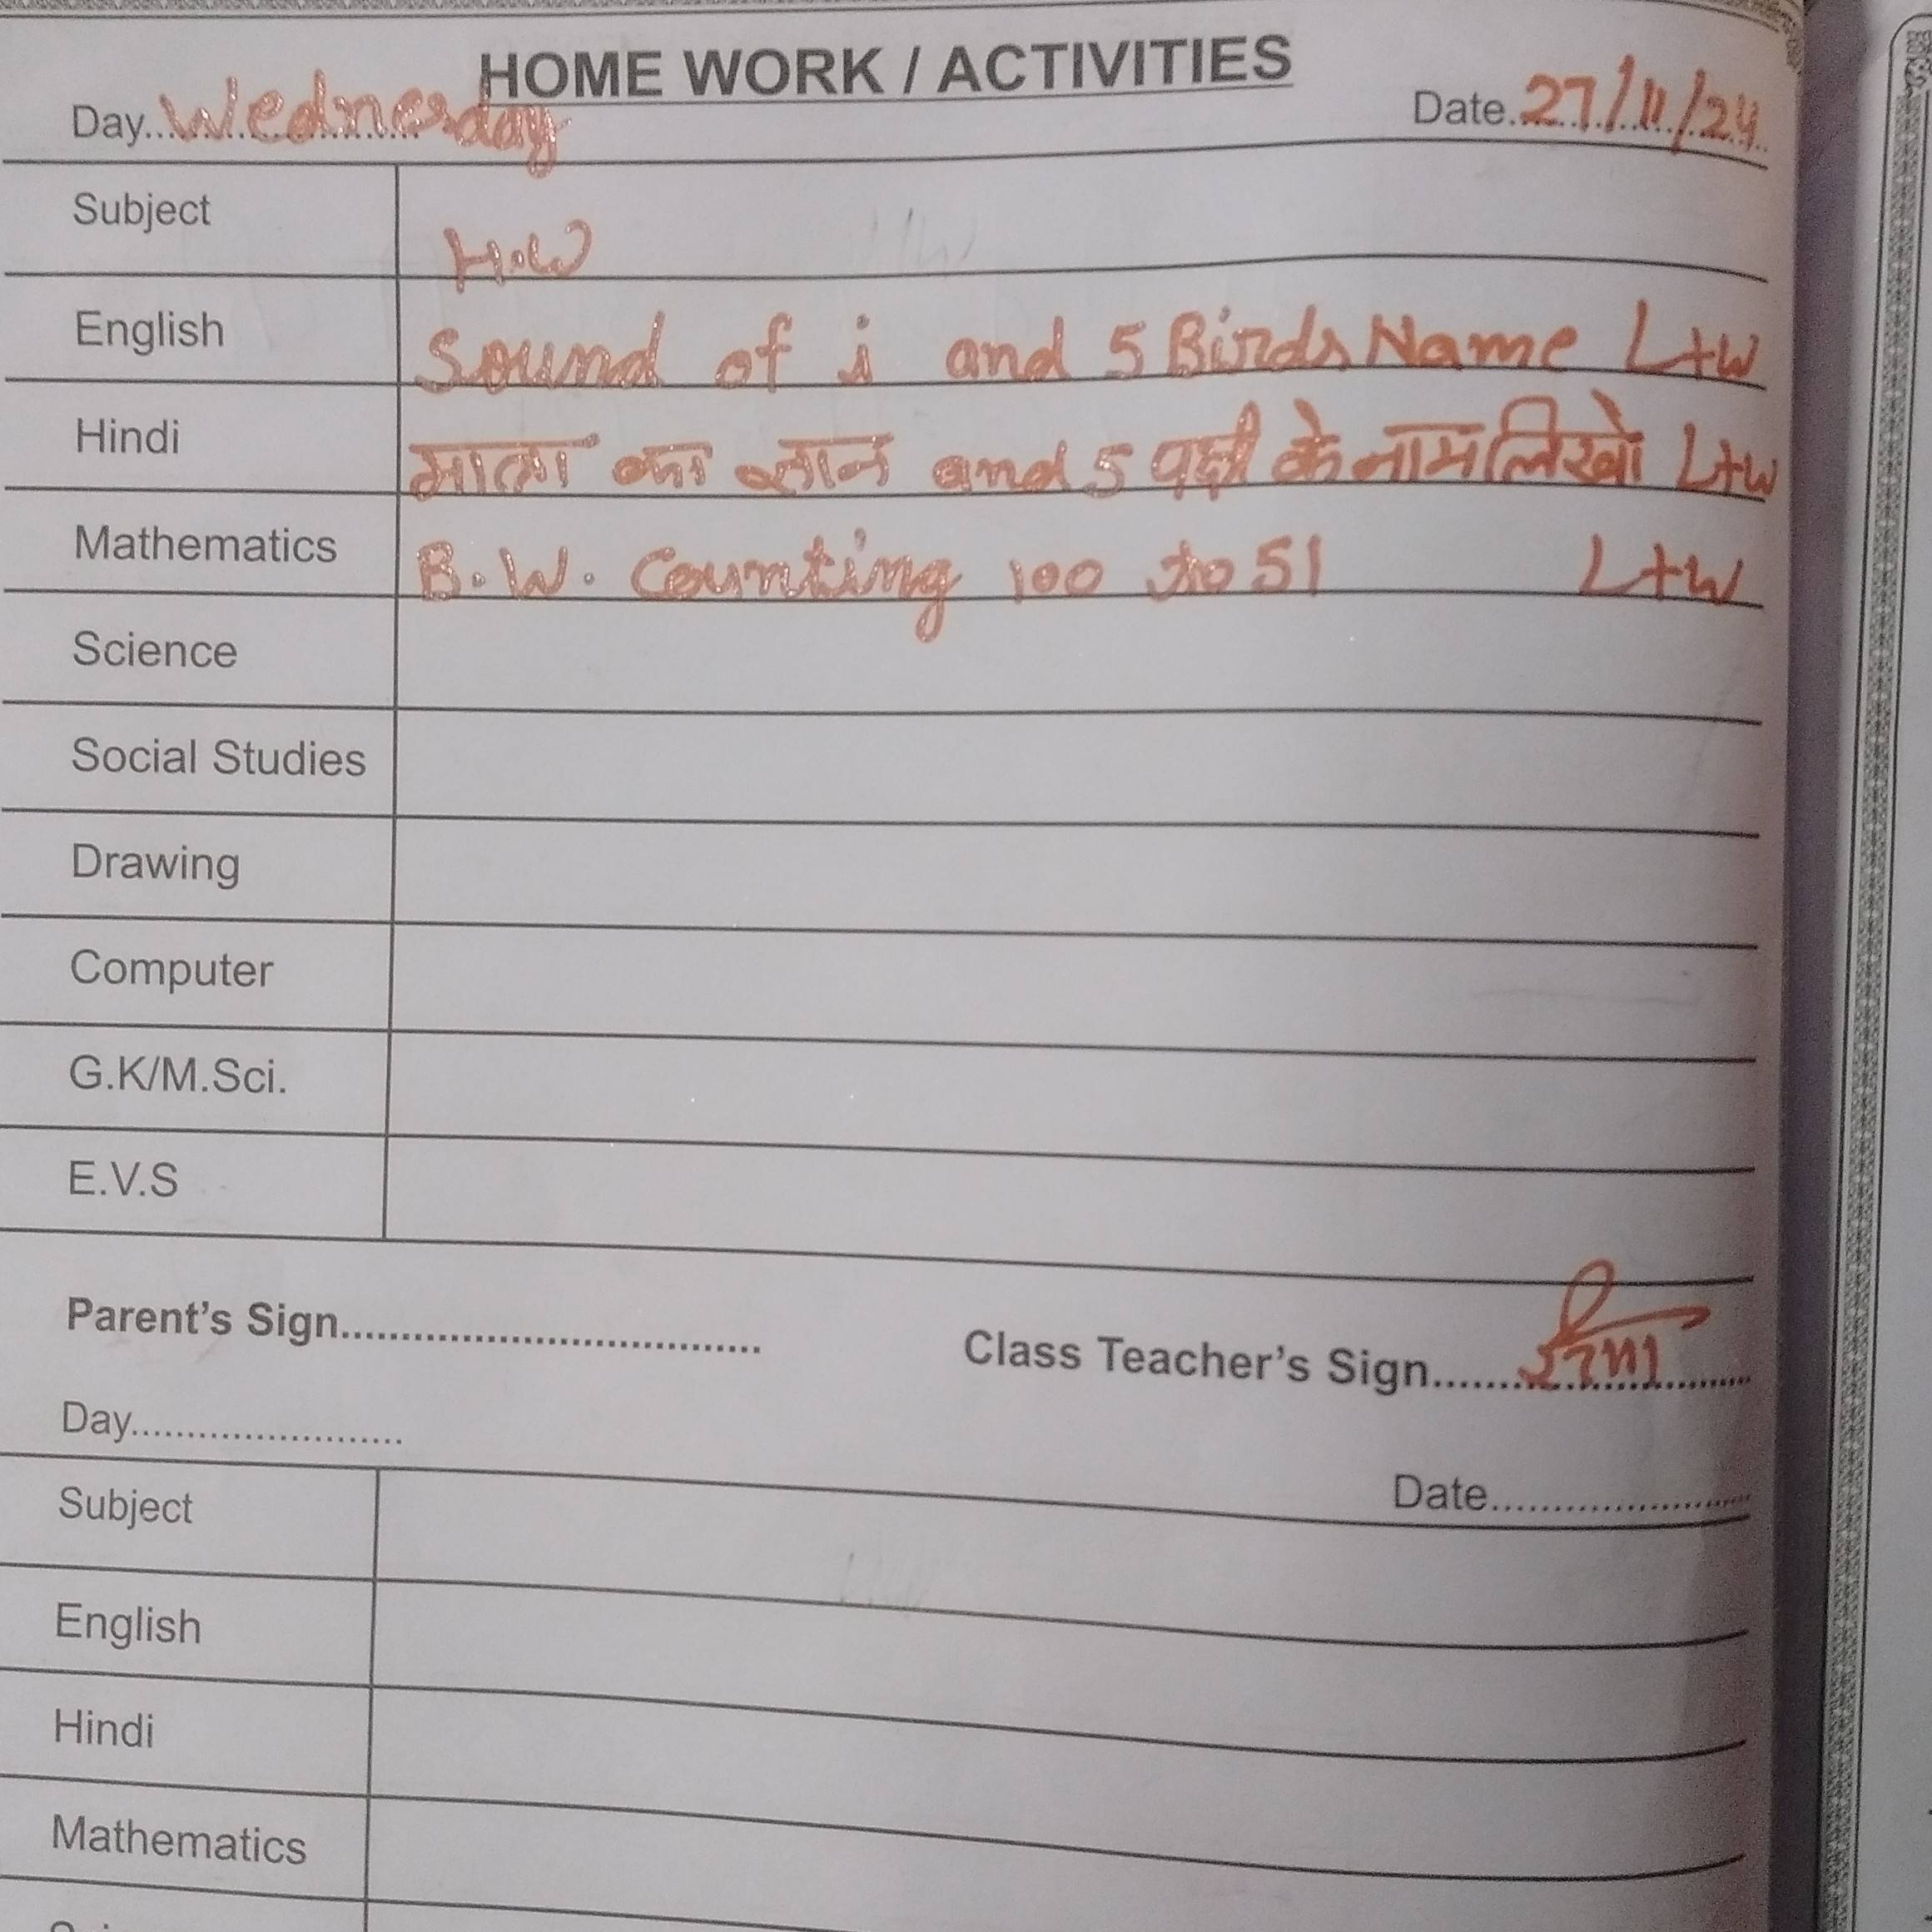 HOME WORK / ACTIVITIES
Day..Wednesday
Date.27/11/24
Subject
H.W
English
Sound of i and 5 Birds Name L+W
Hindi
मात्रा का ज्ञान and 5 पक्षी के नाम लिखो L+W
Mathematics
B.W. Counting 100 to 51 L+W
Science
Social Studies
Drawing
Computer
G.K/M.Sci.
E.V.S
Parent's Sign....................................
Class Teacher's Sign..........................
Day........................
Date........................
Subject
English
Hindi
Mathematics